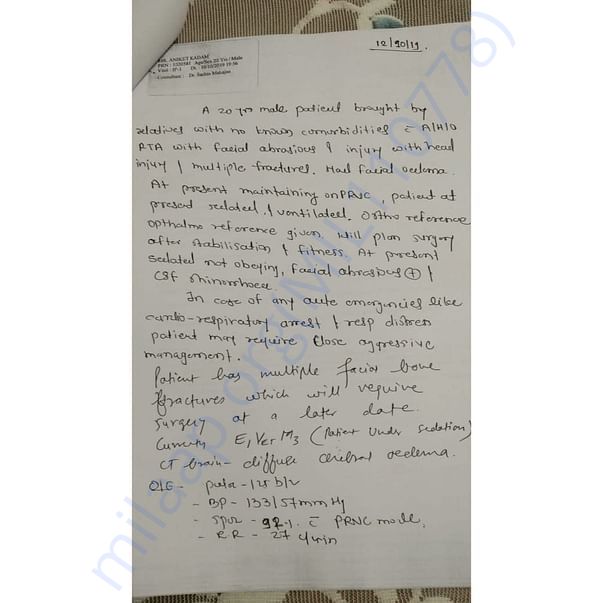 MR. ANIKET KADAM
PRN : 1320581 Age/Sex 20 Yrs / Male
Visit : IP-1 Dt. 10/10/2019 19:56
Consultant : Dr. Sachin Mahajan
12/10/19.
A 20 yrs male patient brought by
relatives with no known comorbidities c̄ A/H/O
RTA with facial abrasions & injury with head
injury / multiple fractures. Had facial oedema.
At present maintaining on PRVC, patient at
present sedated / ventilated. Ortho reference
opthalmo reference given. Will plan surgery
after stabilisation & fitness. At present
sedated not obeying, facial abrasions ⊕ /
CSF rhinorrhoea.
In case of any acute emergencies like
cardio-respiratory arrest / resp distress
patient may require close aggressive
management.
Patient has multiple facial bone
fractures which will require
surgery at a later date.
Currently E1 VET M3 (Patient Under Sedation)
CT brain - diffuse cerebral oedema.
O/E - pulse - 125 b/m
- BP - 133/57 mmHg
- SpO2 - 92%. c̄ PRVC mode,
- RR - 27 /min
milaap.org(MIL110778)